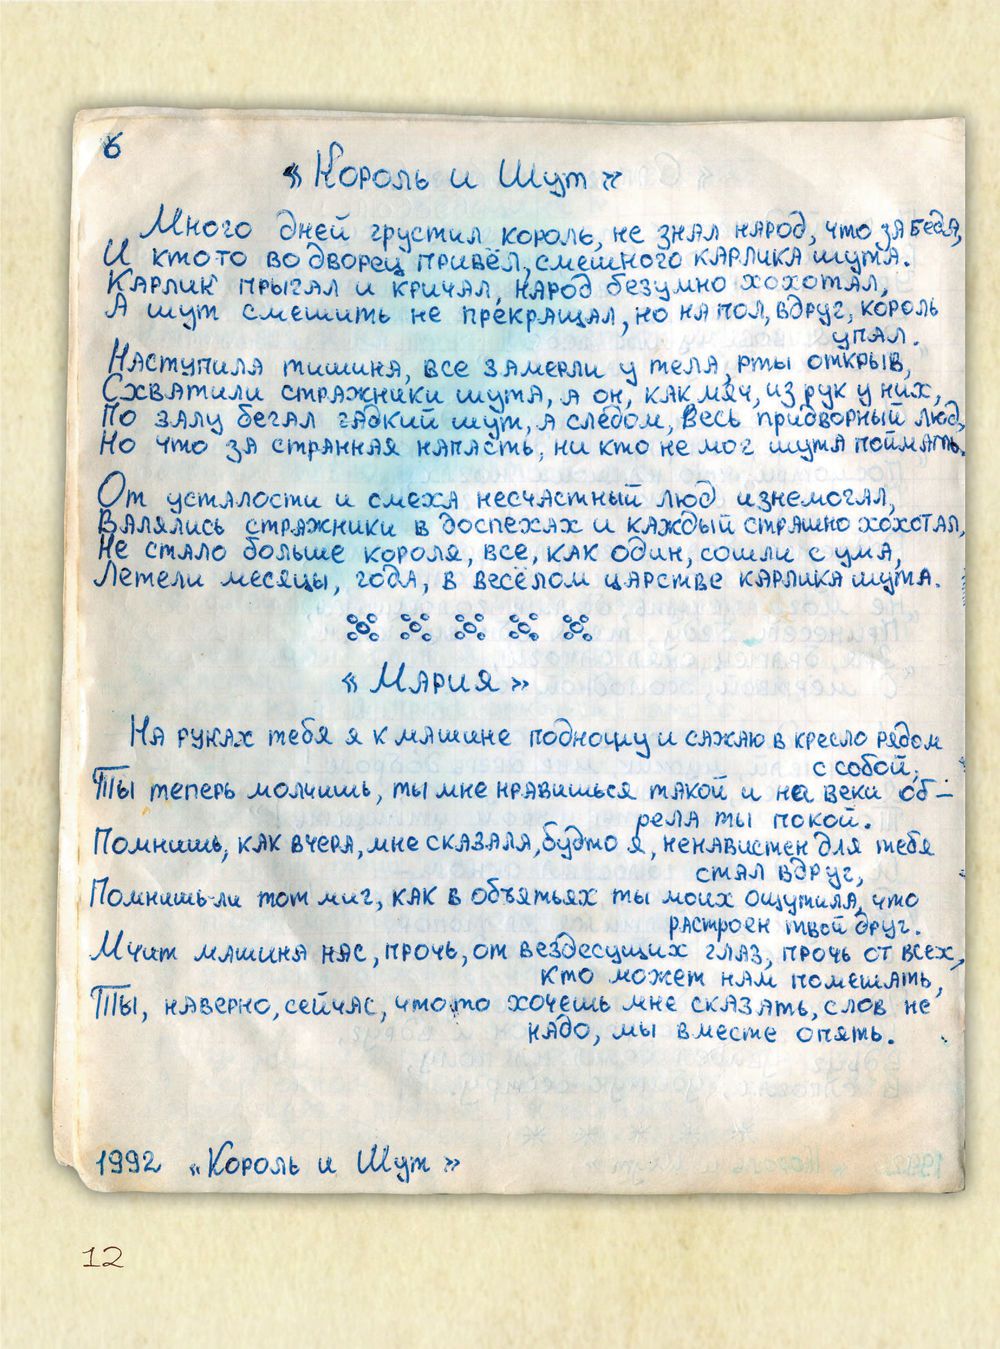 6
«Король и Шут»
Много дней грустил король, не знал народ, что за беда,
И ктото во дворец привёл, смешного карлика шута.
Карлик прыгал и кричал, народ безумно хохотал,
А шут смешить не прекращал, но на пол, вдруг, король
упал.
Наступила тишина, все замерли у тела, рты открыв,
Схватили стражники шута, а он, как мяч, из рук у них,
По залу бегал гадкий шут, а следом, весь придворный люд,
Но что за странная напасть, ни кто не мог шута поймать.
От усталости и смеха несчастный люд изнемогал,
Валялись стражники в доспехах и каждый страшно хохотал,
Не стало больше короля, все, как один, сошли с ума,
Летели месяцы, года, в весёлом царстве карлика шута.
«Мария»
На руках тебя я к машине подношу и сажаю в кресло рядом
с собой,
Ты теперь молчишь, ты мне нравишься такой и на веки об-
рела ты покой.
Помнишь, как вчера, мне сказала, будто я, ненавистен для тебя
стал вдруг,
Помнишь-ли тот миг, как в объятьях ты моих ощутила, что
растроен твой друг.
Мчит машина нас, прочь, от вездесущих глаз, прочь от всех,
кто может нам помешать,
Ты, наверно, сейчас, что-то хочешь мне сказать, слов не
надо, мы вместе опять.
1992 «Король и Шут»
12